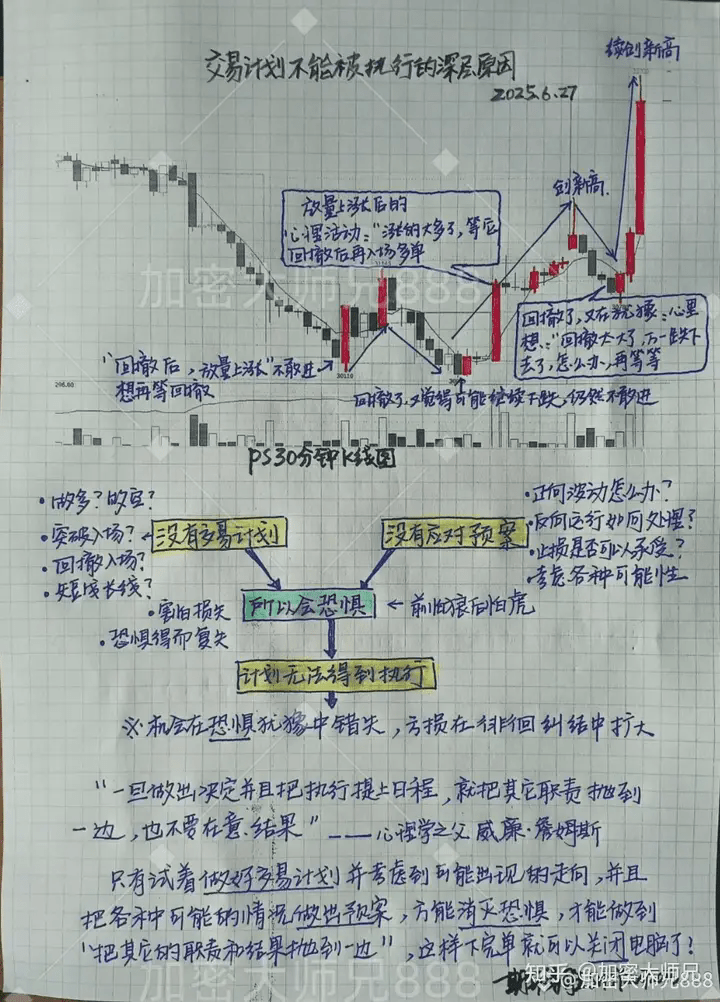 交易计划不能被执行的深层原因
2025.6.27
续创新高
创新高
放量上涨后的
心理活动:“涨的太多了,等后
回撤后再入场多单
回撤了,又在犹豫:心里
想:“回撤太大了,万一跌下
去了,怎么办,再等等
“回撤后,放量上涨”不敢进
想再等回撤
回撤了,又觉得可能继续下跌,仍然不敢进
30110
296.00
PS30分钟K线图
·做多?做空?
·突破入场?
·回撤入场?
·短线长线?
没有交易计划
没有应对预案
·正向波动怎么办?
·反向运行如何处理?
·止损是否可以承受?
·考虑各种可能性
·害怕损失
·恐惧得而复失
所以会恐惧
前怕狼后怕虎
计划无法得到执行
※机会在恐惧犹豫中错失,亏损在徘徊纠结中扩大
“一旦做出决定并且把执行提上日程,就把其它职责抛到
一边,也不要在意结果”——心理学之父 威廉·詹姆斯
只有试着做好交易计划并考虑到可能出现的走向,并且
把各种可能的情况做出预案,方能消灭恐惧,才能做到
“把其它的职责和结果抛到一边”,这样下完单就可以关闭电脑了!
加密大师兄888
加密大师兄888
加密大师兄888
知乎 @加密大师兄
@加密大师兄888